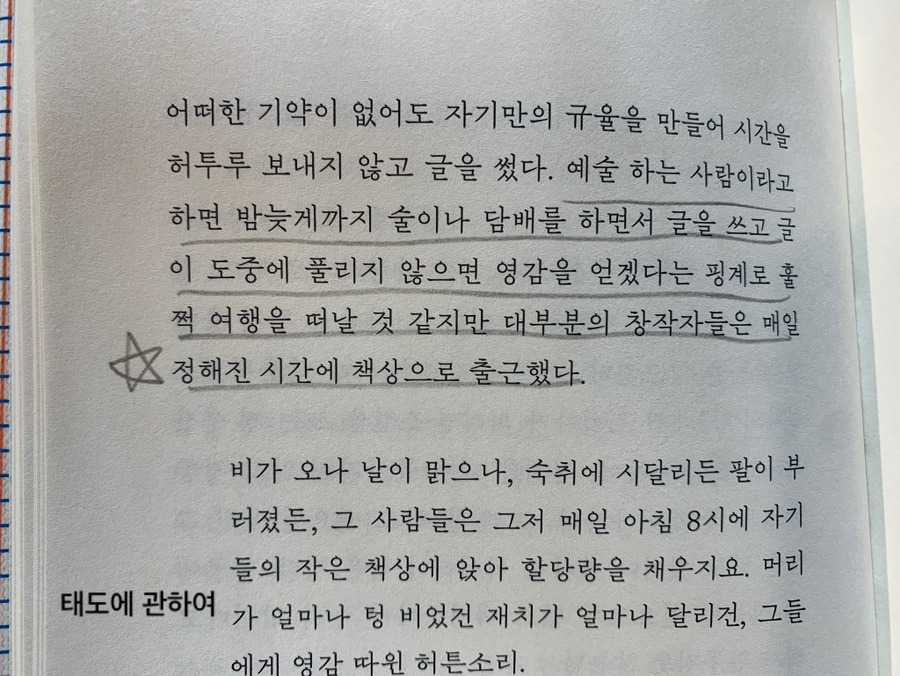 어떠한 기약이 없어도 자기만의 규율을 만들어 시간을
허투루 보내지 않고 글을 썼다. 예술 하는 사람이라고
하면 밤늦게까지 술이나 담배를 하면서 글을 쓰고 글
이 도중에 풀리지 않으면 영감을 얻겠다는 핑계로 훌
쩍 여행을 떠날 것 같지만 대부분의 창작자들은 매일
정해진 시간에 책상으로 출근했다.
비가 오나 날이 맑으나, 숙취에 시달리든 팔이 부
러졌든, 그 사람들은 그저 매일 아침 8시에 자기
들의 작은 책상에 앉아 할당량을 채우지요. 머리
가 얼마나 텅 비었건 재치가 얼마나 달리건, 그들
에게 영감 따윈 허튼소리.
태도에 관하여